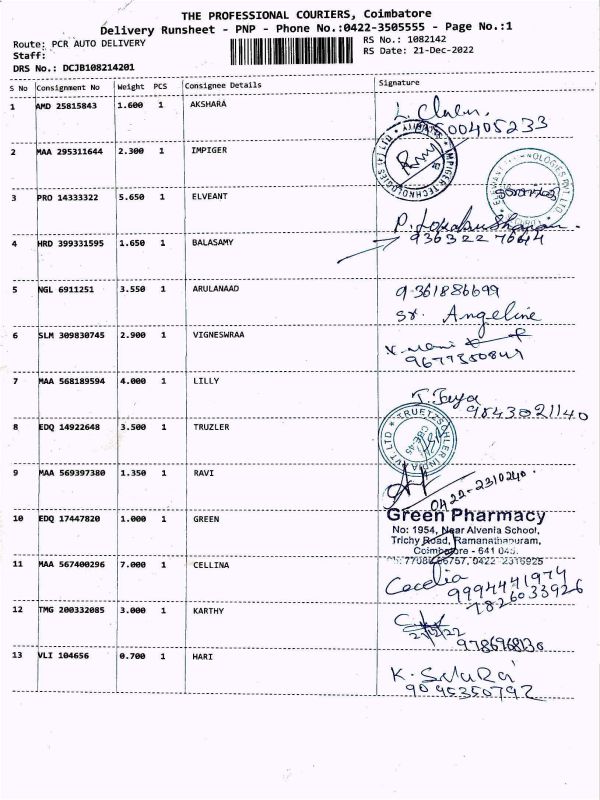 THE PROFESSIONAL COURIERS, Coimbatore
Delivery Runsheet - PNP - Phone No.:0422-3505555 - Page No.:1
Route: PCR AUTO DELIVERY
RS No.: 1082142
Staff:
RS Date: 21-Dec-2022
DRS No.: DCJB108214201
S No Consignment No Weight PCS Consignee Details Signature
1 AMD 25815843 1.600 1 AKSHARA
2 MAA 295311644 2.300 1 IMPIGER
IMPIGER TECHNOLOGIES (P) LTD
3 PRO 14333322 5.650 1 ELVEANT
4 HRD 399331595 1.650 1 BALASAMY
9363227644
5 NGL 6911251 3.550 1 ARULANAAD
9361886699
Sr. Angeline
6 SLM 309830745 2.900 1 VIGNESWRAA
7 MAA 568189594 4.000 1 LILLY
9543021140
8 EDQ 14922648 3.500 1 TRUZLER
TRUETZSCHLER INDIA PVT LTD
CBE-45
9 MAA 569397380 1.350 1 RAVI
0422-2310240.
10 EDQ 17447820 1.000 1 GREEN
Green Pharmacy
No: 1954, Near Alvenia School,
Trichy Road, Ramanathapuram,
Coimbatore - 641 045.
11 MAA 567400296 7.000 1 CELLINA
Cecelia 9994441974
7826033926
12 TMG 200332085 3.000 1 KARTHY
21/12/22
13 VLI 104656 0.700 1 HARI
9095350792